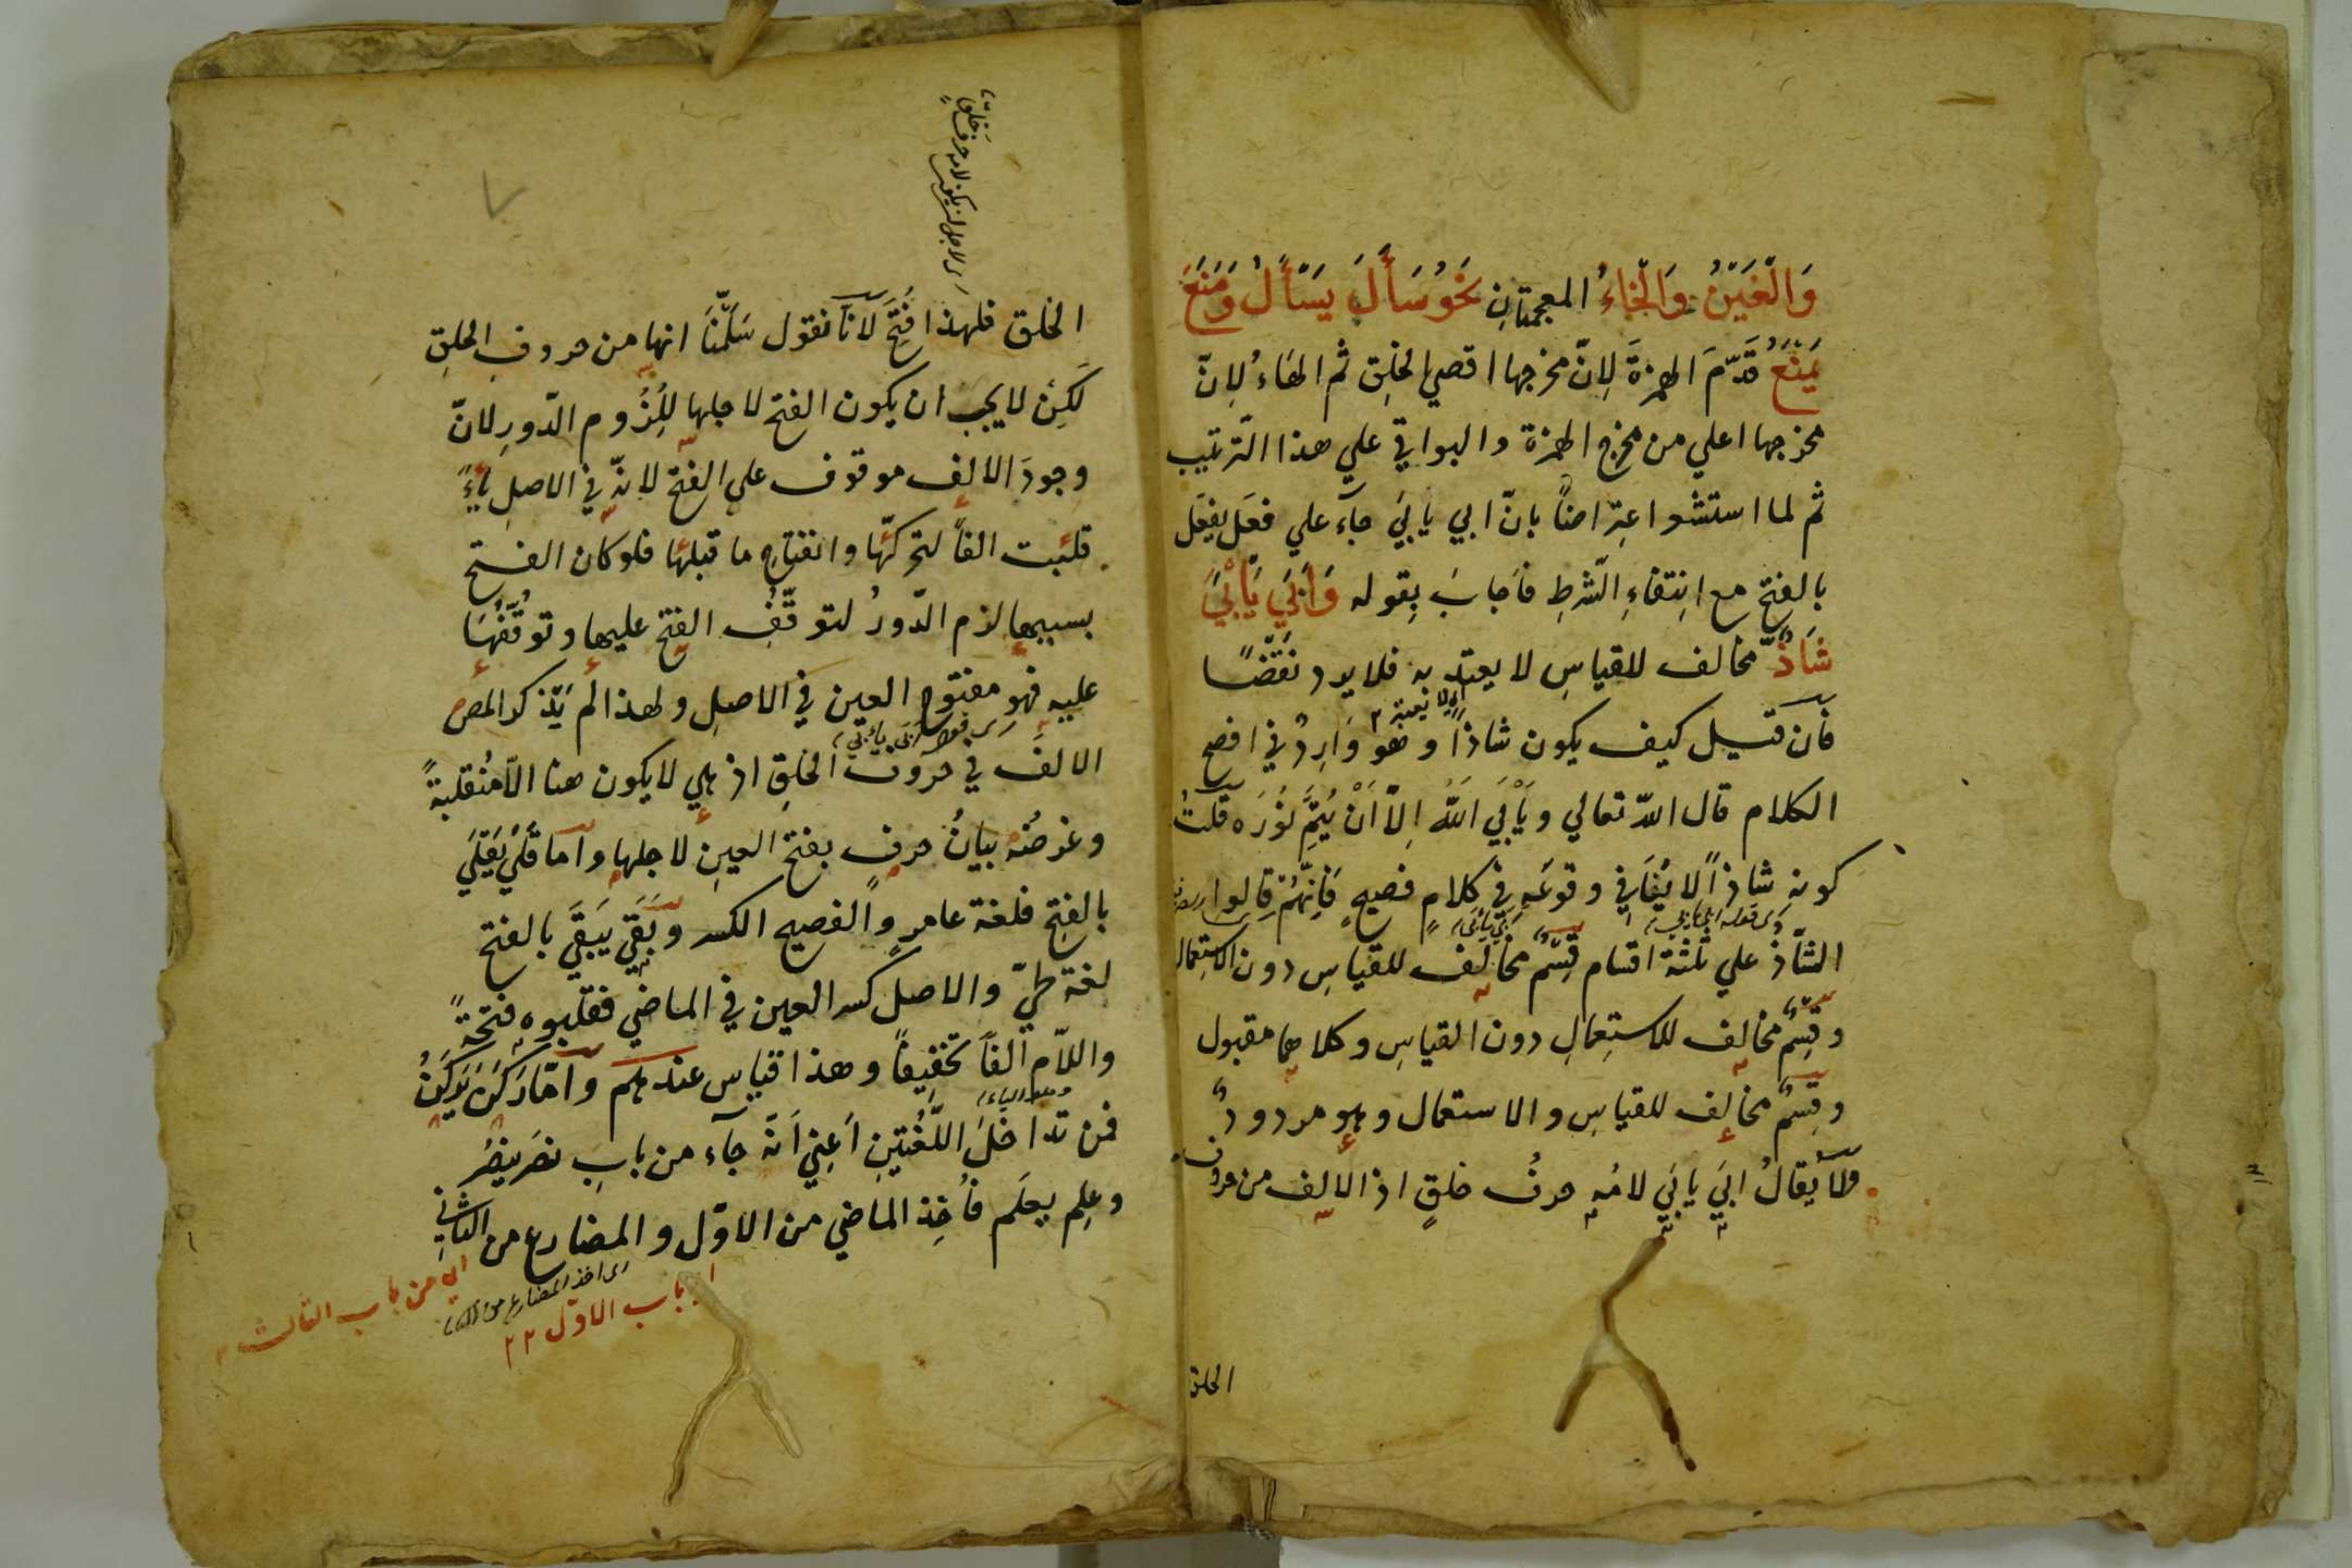 وَالْغَيْنُ وَالْخَاءُ المعجمتانِ نَحْوُ سَأَلَ يَسْأَلُ وَمَنَعَ
يَمْنَعُ قَدَّمَ الهمزةَ لِانّ مخرجها اقصي الحلق ثم الهَاءُ لِانّ
مخرجها اعلي من مخرج الهمزة والبواقي علي هذا التّرتيب
ثم لما استشعر اعتراضاً بانّ ابي يابَي جآء علي فعَل يفعَل
بالفتح مع اِنتفاءِ الشّرطِ فاَجابَ بِقوله وَاَبَي يَأْبَي
شَاذٌّ مخالف للقياسِ لا يعتد به فلا يرد نَقْضًا
فان قيل كيف يكون شاذاً وهو وَارِدٌ في افصح
الكلام قال اللّه تعالي ويَأْبَي اَللّٰهُ اِلاّ اَنْ يُتِمَّ نُوْرَه قلتُ
كونه شاذاً لا يُنَافي وقوعَه في كلامٍ فصيحٍ فَاِنَّهُمْ قالوا
اي قوله ابي يابي
الشّاذ علي ثلثة اقسام قِسْمٌ مخالِف للقياسِ دون الاستِعمال
وقِسْمٌ مخالِف للاستِعمالِ دون القياسِ وكلاهما مقبول
وقِسمٌ مخالِف للقياسِ والاستعمال وهو مردودٌ
ولا يُقالُ ابَي يابَي لامُه حرفُ حلقٍ اذ الالِف من حروف
الحلق
اي لاجل ان يكون لامه حرف حلق
الحلق فلهذا فُتِحَ لانّا نقول سَلَّمْنَا انها من حروفِ الحلقِ
لَكِن لا يجب ان يكون الفتح لاجلها لِلُزُوم الدّورِ لانّ
وجودَ الالِف موقوف علي الفتح لانّه في الاصل ياءً
قلبت الفاً لتحركّها وانفتاحِ ما قبلها فلو كان الفتح
بسببها لزم الدّورُ لتوقّفِ الفتح عليها وتوقّفُهَا
عليه فهو مفتوح العين في الاصلِ ولهذا لم يَذْكر المص
الالفَ في حروف الحلقِ اذ هي لا يكون هنا الاّ مُنقلبةً
وغرضُه بيانُ حرفٍ بفتح العينِ لاجلها وامّا قَلَي يَقْلَي
بالفتح فلغة عامرٍ والفصيح الكسر وبَقَي يَبْقَي بالفتح
لغة طيّ والاصل كسر العين في الماضي فقلبوه فتحةً
واللاّم الفاً تخفيفاً وهذا قياس عندهم وامّا رَكَنَ يَرْكَنُ
فمن تداخلَ اللّغتينِ اَعِني اَنّه جآء من بابِ نصَر ينصُر
وعلِم يعلَم فاُخِذ الماضي من الاوّل والمضارع من الثاني
اي من باب الثالث
اي اخذ المضارع من
باب الاول ٢٢